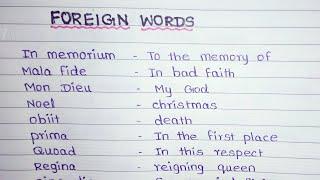 FOREIGN WORDS
In memorium - To the memory of
Mala fide - In bad faith
Mon Dieu - My God
Noel - christmas
obiit - death
prima - In the first place
Quoad - In this respect
Regina - reigning queen